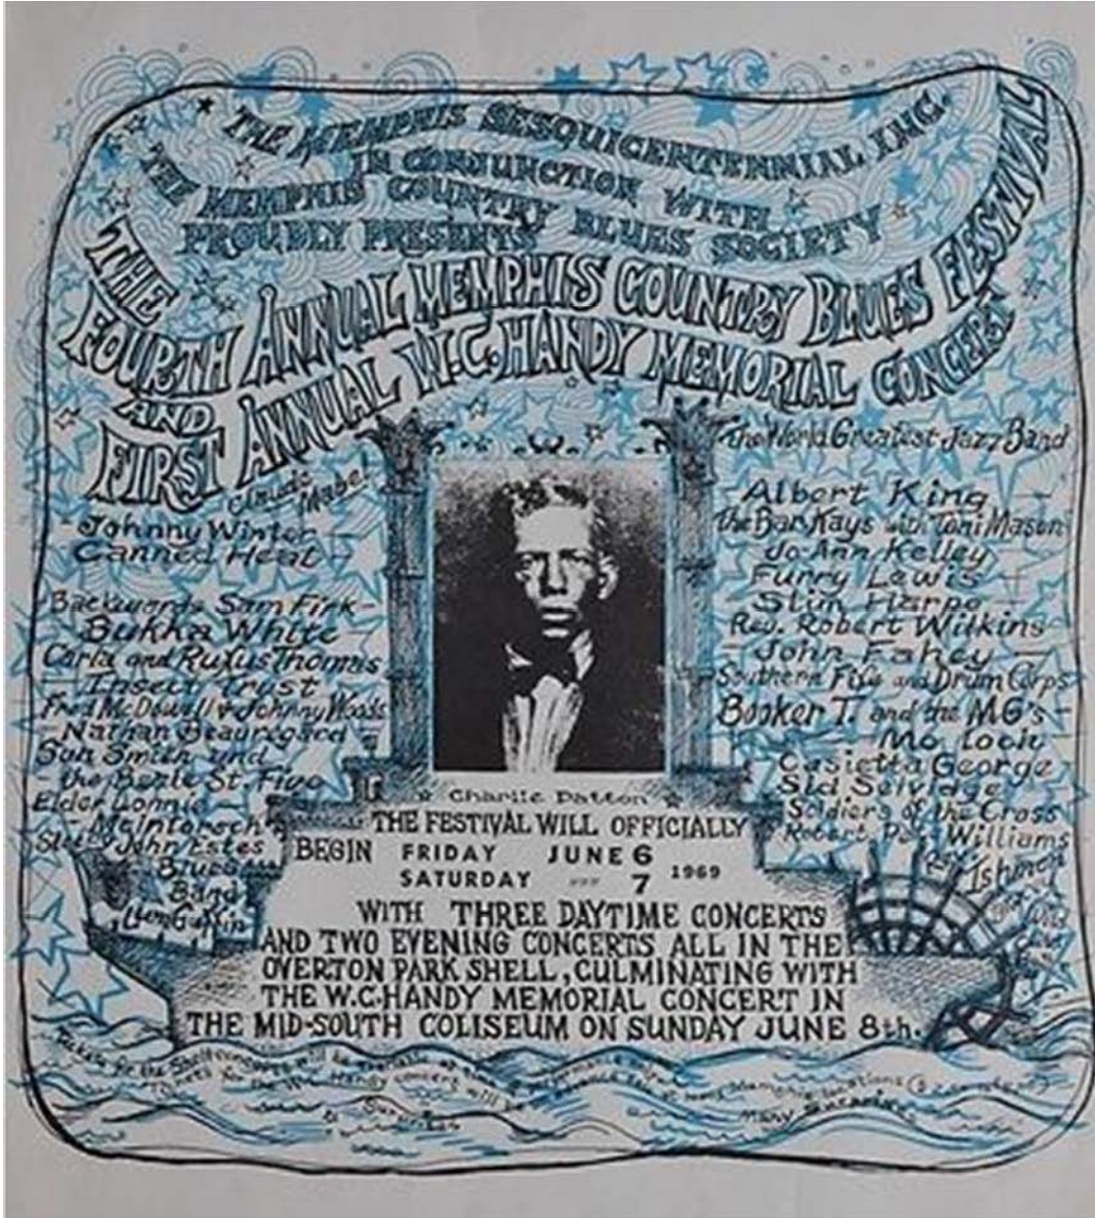 THE MEMPHIS SESQUICENTENNIAL INC.
IN CONJUNCTION WITH
THE MEMPHIS COUNTRY BLUES SOCIETY
PROUDLY PRESENTS
THE
FOURTH ANNUAL MEMPHIS COUNTRY BLUES FESTIVAL
AND
FIRST ANNUAL W.C. HANDY MEMORIAL CONCERT
Claude Mabel
Johnny Winter
Canned Heat
Backwards Sam Firk
Bukka White
Carla and Rufus Thomas
Insect Trust
Fred McDowell & Johnny Woods
Nathan Beauregard
Sun Smith and
the Beale St. Five
Elder Lonnie
McIntorsch
John Estes
Blues
Band
The World Greatest Jazz Band
Albert King
the Bar Kays with Toni Mason
Jo-Ann Kelley
Furry Lewis
Slim Harpo
Rev. Robert Wilkins
John Fahey
Southern Fife and Drum Corps
Booker T. and the MG's
Mo loch
Casietta George
Sid Selvidge
Soldiers of the Cross
Robert Williams
Charlie Patton
THE FESTIVAL WILL OFFICIALLY
BEGIN FRIDAY JUNE 6
SATURDAY 7 1969
WITH THREE DAYTIME CONCERTS
AND TWO EVENING CONCERTS ALL IN THE
OVERTON PARK SHELL, CULMINATING WITH
THE W.C. HANDY MEMORIAL CONCERT IN
THE MID-SOUTH COLISEUM ON SUNDAY JUNE 8th.
Tickets for the Shell concerts will be
Tickets for the W.C. Handy concert will be
Many Surprises